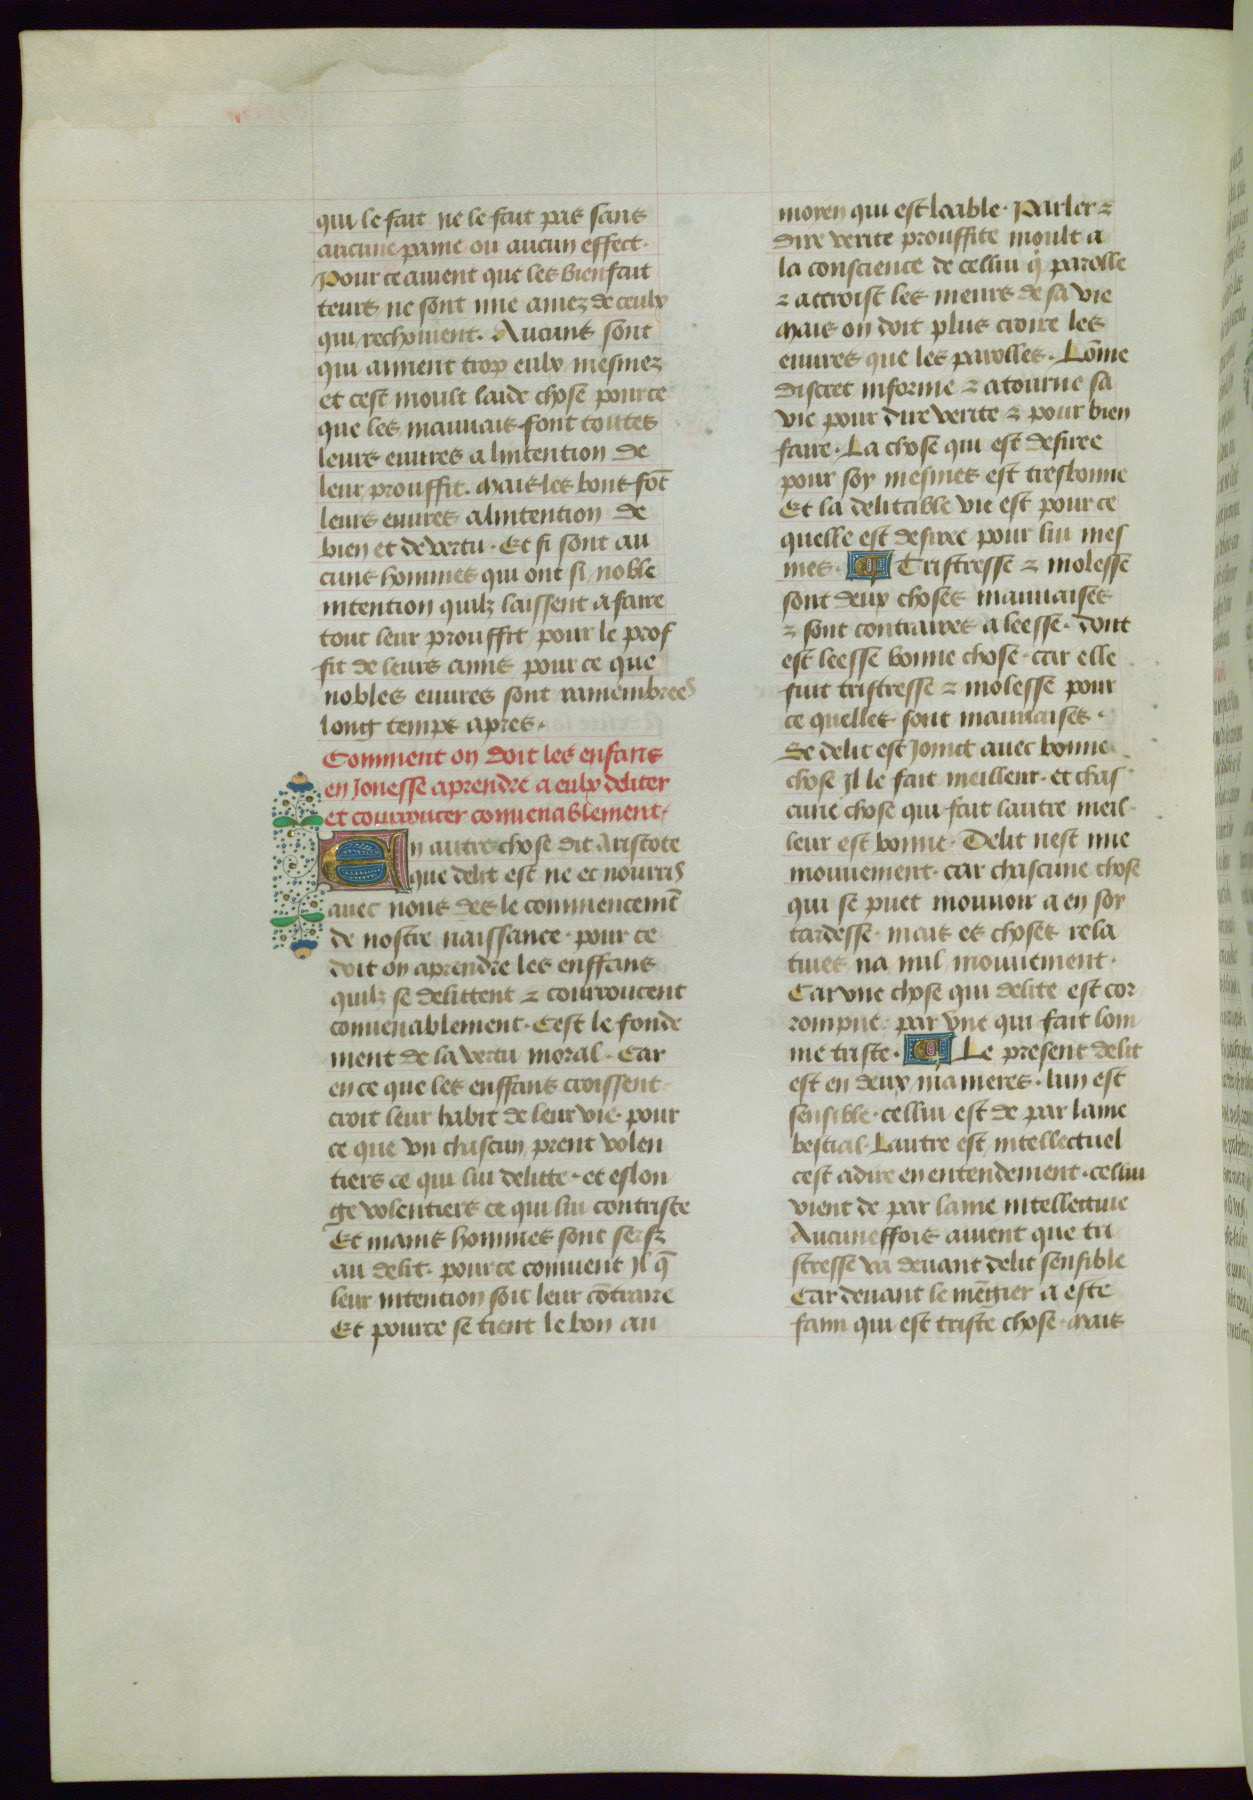 qui le fait ne le fait pas sans
aucune paine ou aucun effect.
Pour ce auient que les bienfait
teurs ne sont mie amez de ceulx
qui rechoiuent. Aucuns sont
qui aiment trop eulx mesmez
et cest moult laide chose pource
que les mauuais font toutes
leurs euures a lintention de
leur prouffit. Mais les bons fo͞t
leurs euures a lintention de
bien et de vertu. Et si sont au
cuns hommes qui ont si noble
intention quilz laissent a faire
tout leur prouffit pour le prof
fit de leurs amis pour ce que
nobles euures sont ramembrees
long temps apres.
Comment on doit les enfans
en Jonesse aprendre a eulx deliter
et courroucer conuenablement.
En autre chose dit Aristote
que delit est ne et nourris
auec nous des le commenceme͞t
de nostre naissance. pour ce
doit on aprendre les enffans
quilz se delittent ⁊ courroucent
conuenablement. Cest le fonde
ment de la vertu moral. Car
en ce que les enffans croissent
croit leur habit de leur vie. pour
ce que vn chascun prent volen
tiers ce qui lui delitte. et eslon
ge volentiers ce qui lui contriste
Et mains hommes sont serfz
au delit. pource conuient Jl q̄
leur intention soit leur co͞traire
Et pource se tient le bon au
moyen qui est loable. Parler ⁊
dire verite prouffite moult a
la conscience de cellui q̇ parolle
⁊ accroist les meurs de sa vie
Mais on doit plus croire les
euures que les parolles. Lo͞me
discret informe ⁊ atourne sa
vie pour dire verite ⁊ pour bien
faire. La chose qui est desiree
pour soy mesmes est tresbonne
Et la delitable vie est pour ce
quelle est desiree pour lui mes
mes. Tristresse ⁊ molesse
sont deux choses mauuaises
⁊ sont contraires a leesse. dont
est leesse bonne chose. car elle
fuit tristresse ⁊ molesse pour
ce quelles sont mauuaises.
Se delit est Joinct auec bonne
chose Jl le fait meilleur. et chas
cune chose qui fait lautre meil
leur est bonne. Delit nest mie
mouuement. car chascune chose
qui se puet mouuoir a en soy
tardesse. mais es choses rela
tiues na nul mouuement.
Car vne chose qui delite est cor
rompue. par vne qui fait lom
me triste. Le present delit
est en deux manieres. lun est
sensible. cellui est de par lame
bestial. Lautre est intellectuel
cest adire en entendement. cellui
vient de par lame intellectiue
Aucuneffois auient que tri
stresse va deuant delit sensible
Car deuant le me͞gier a este
faim qui est triste chose. Mais